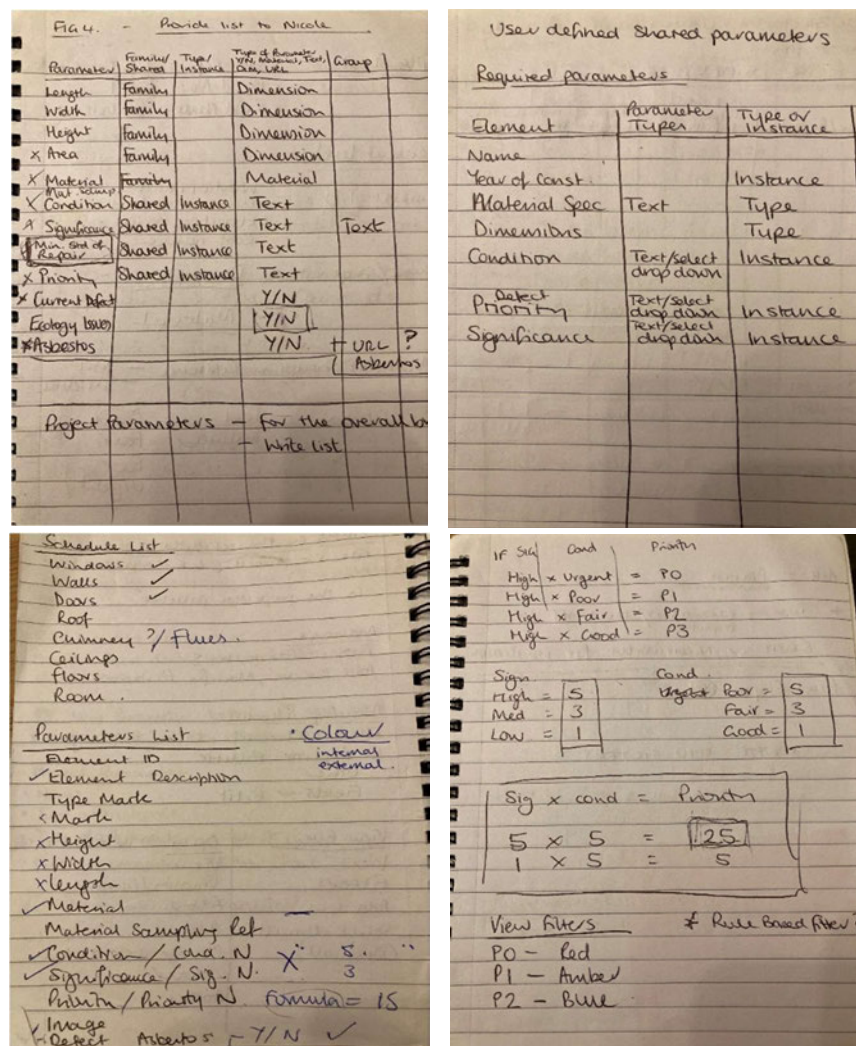 FIG 4. - Provide list to Nicole
Parameter Family/Shared Type/Instance Type of Parameter Y/N, Material, Text, Dim, URL Group
Length Family Dimension
Width Family Dimension
Height Family Dimension
x Area Family Dimension
x Material Family Material
x Condition Shared Instance Text
x Significance Shared Instance Text Text
Min. Std of Repair Shared Instance Text
x Priority Shared Instance Text
x Current Defect Y/N
Ecology Issues Y/N
x Asbestos Y/N + URL ?
Asbestos
Project Parameters - For the overall
- Write list
User defined shared parameters
Required parameters
Element Parameter Types Type or Instance
Name
Year of Const. Instance
Material Spec Text Type
Dimensions Type
Condition Text/select drop down Instance
Defect Priority Text/select drop down Instance
Significance Text/select drop down Instance
Schedule List
Windows ✓
Walls ✓
Doors ✓
Roof
Chimney ?/ Flues.
Ceilings
Floors
Room.
Parameters List
• Colour
internal
external.
Element ID
✓ Element Description
Type Mark
Mark
x Height
x Width
x Length
✓ Material
Material Sampling Ref
✓ Condition / Cond. N 5.
✓ Significance / Sig. N. X 3
Priority / Priority N Formula = 15
Image
Defect Asbestos - Y/N ✓
IF Sig Cond Priority
High x Urgent = P0
High x Poor = P1
High x Fair = P2
High x Good = P3
Sign. Cond.
High = 5 Poor = 5
Med = 3 Fair = 3
Low = 1 Good = 1
Sig x cond = Priority
5 x 5 = 25
1 x 5 = 5
View Filters * Rule Based Filter?
P0 - Red
P1 - Amber
P2 - Blue